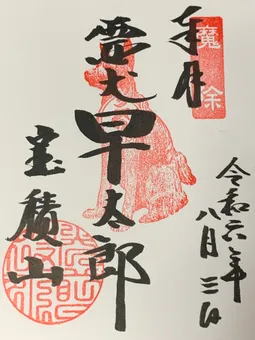 魔除
奉拝
令和六年
八月三日
霊犬早太郎
宝積山